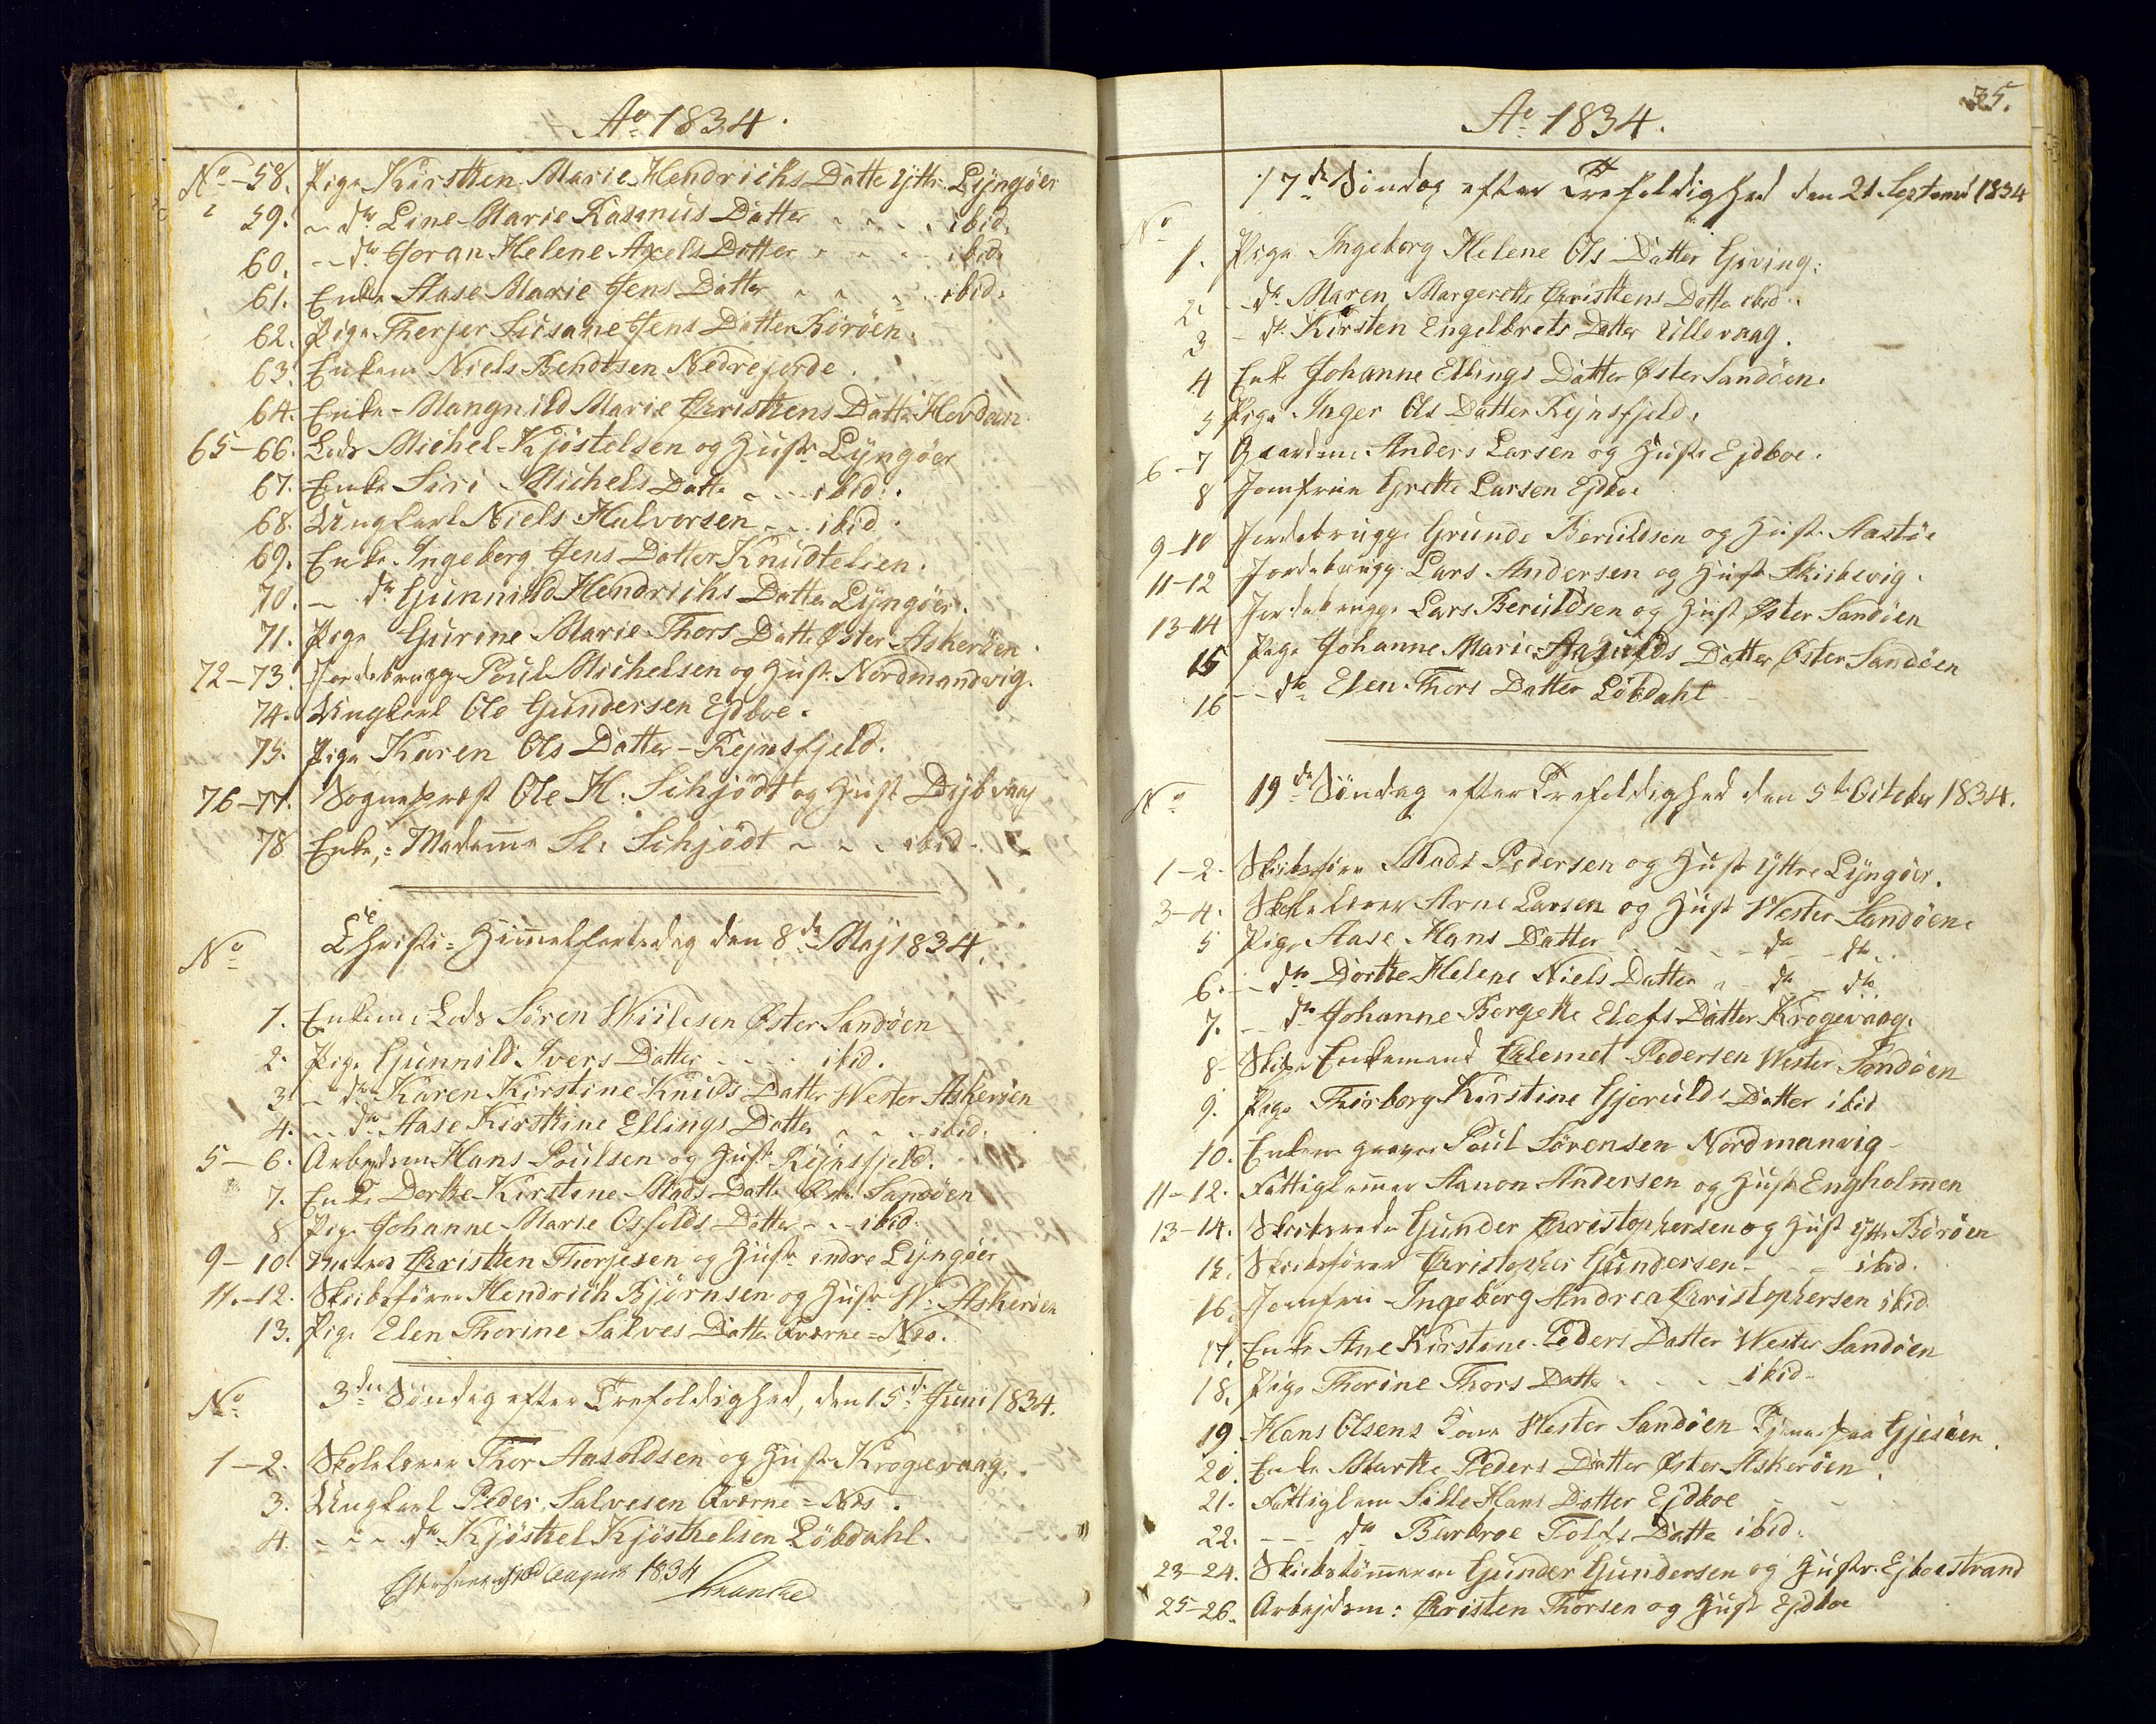 Ao 1834.
No 58. Pige Kirsthen Marie Hendrichs Datter Ytt: Lyngöer
59. - do Line Marie Rasmus Datter - - - ibid.
60. - - do Joran Helene Axels Datter - - - ibid.
61. Enke Aase Marie Jens Datter - - - ibid.
62. Pige Therjer Susane Jens Datter Boröen.
63. Enkem Niels Bendtsen Nedrefjerde.
64. Enke - Mangnild Marie Christhens Datter Hovdan
65-66. Lods Michel Kjöstelsen og Hustr Lyngöer
67. Enke Siri Michels Datt - - ibid.
68. Ungkarl Niels Halvorsen - - ibid.
69. Enke Ingeborg Jens Datter Knudtelien.
70. - do Gunnild Hendrichs Datter Lyngöer.
71. Pige Gurine Marie Thors Datt Öster Askeröen.
72-73. Jordebrugg Poul Michelsen og Hust Nordmandvig.
74. Ungkarl Ole Gundersen Ejdboe.
75. Pige Karen Ols Datter - Rejnsfjeld.
76-77. Sognepræst Ole H: Schjödt og Hust Dybvaag
78 Enke, = Madame Sl: Schjödt - - - ibid -
No Christi = Himmelfartsdag den 8de Maj 1834.
1. Enkem: Lods Sören Wiilesen Öster Sandöen
2. Pige Gunnild Ivers Datter - - - ibid.
3. - do Karen Kirstine Knuds Datter Wester Askeröen
4. - - do Aase Kirsthine Ellings Datter - - - ibid.
5-6. Arbejdsm Hans Poulsen og Hustr Rejnsfjeld.
7. Enke Dorthe Kirstine Mads Datt Öster Sandöen
8 Pige Johanne Marie Osfilds Datter - - ibid.
9-10. Christhen Thorjesen og Hustr indre Lyngöer
11.-12. Skibsförer Hendrich Björnsen og Hustr W: Askeröen
13. Pige Elen Thorine Salves Datter Qværne = Næs.
No 3die Söndag efter Trefoldighed, den 15de Juni 1834.
1-2. Skolelærer Thor Aasoldsen og Hustr Krogevaag.
3. Ungkarl Peder Salvesen Qværne = Næs.
4. - - - do Kjösthel Kjösthelsen Löbdahl.
August 1834
35.
Ao 1834.
17de Söndag efter Trefoldighed den 21 September 1834
No
1. Pige Ingeborg Helene Ols Datter Gjving.
2. - do Maren Margerethe Christhens Datter ibid.
3 - do Kirsten Engelbrets Datter Ullevaag.
4 Enke Johanne Ellings Datter Öster Sandöen.
5 Pige Inger Ols Datter Rejnsfjeld.
6-7 Gaardm: Anders Larsen og Hustr Ejdboe.
8 Jomfrue Grethe Larsen Ejdboe
9-10 Jordebrugge Grunde Beruldsen og Hust. Aastöe
11-12 Jordebrugg: Lars Andersen og Hust Skiibevig.
13-14 Jordebrugge Lars Beruldsen og Hust Öster Sandöen
15 Pige Johanne Marie Datter Öster Sandöen
16 - - do Elen Thors Datter Löbdahl
No 19de Söndag efter Trefoldighed den 5te October 1834.
1-2. Skibsförer Mads Pedersen og Hustr Yttre Lyngöer.
3-4. Skolelærer Arne Larsen og Hust Wester Sandöen.
5 Pige Aase Hans Datter - - - do - do
6. - do Dorthe Helene Niels Datter - do - do
7. - - do Johanne Bergethe Elefs Datter Krogevaag.
8- Enkemand Clemet Pedersen Wester Sandöen
9. Pige Thorborg Kirstine Gjerulds Datter ibid
10. Enkem Poul Sörensen Nordmanvig
11-12. Fattiglemmer Aanon Andersen og Hustr Engholmen
13-14. Skibsreder Gunder Christophersen og Hust Yttr Boröen
15. Skibsförer Christopher Gundersen - - - ibid.
16. Jomfrue Ingeborg Andrea Christophersen ibid.
17. Enke Ane Kirstine Peders Datter Wester Sandöen
18. Pige Thorine Thors Datter - - - ibid.
19 Hans Olsens Wester Sandöen paa Gjesöen.
20. Enke Marthe Peders Datter Öster Askeröen.
21. Fattiglem Sille Hans Datter Ejdboe
22. - - - do Barbroe Tolfs Datter ibid.
23-24. Skibstömmerm Gunder Gundersen og Hustr. Ejboestrand
25-26. Arbejdsm: Christen Thorsen og Hust Ejdboe